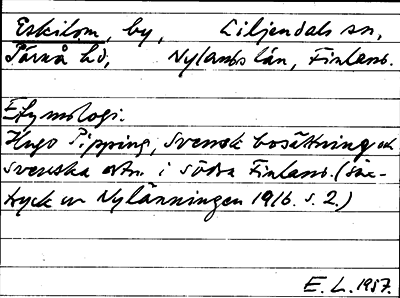 Eskilom, by, Liljendals sn,
Pärnå hd, Nylands län, Finland.
Etymologi.
Hugo Pipping, Svensk bosättning och
svenska ortn. i södra Finland. (sär-
tryck ur Nylänningen 1916. s. 2.)
E. L. 1957.